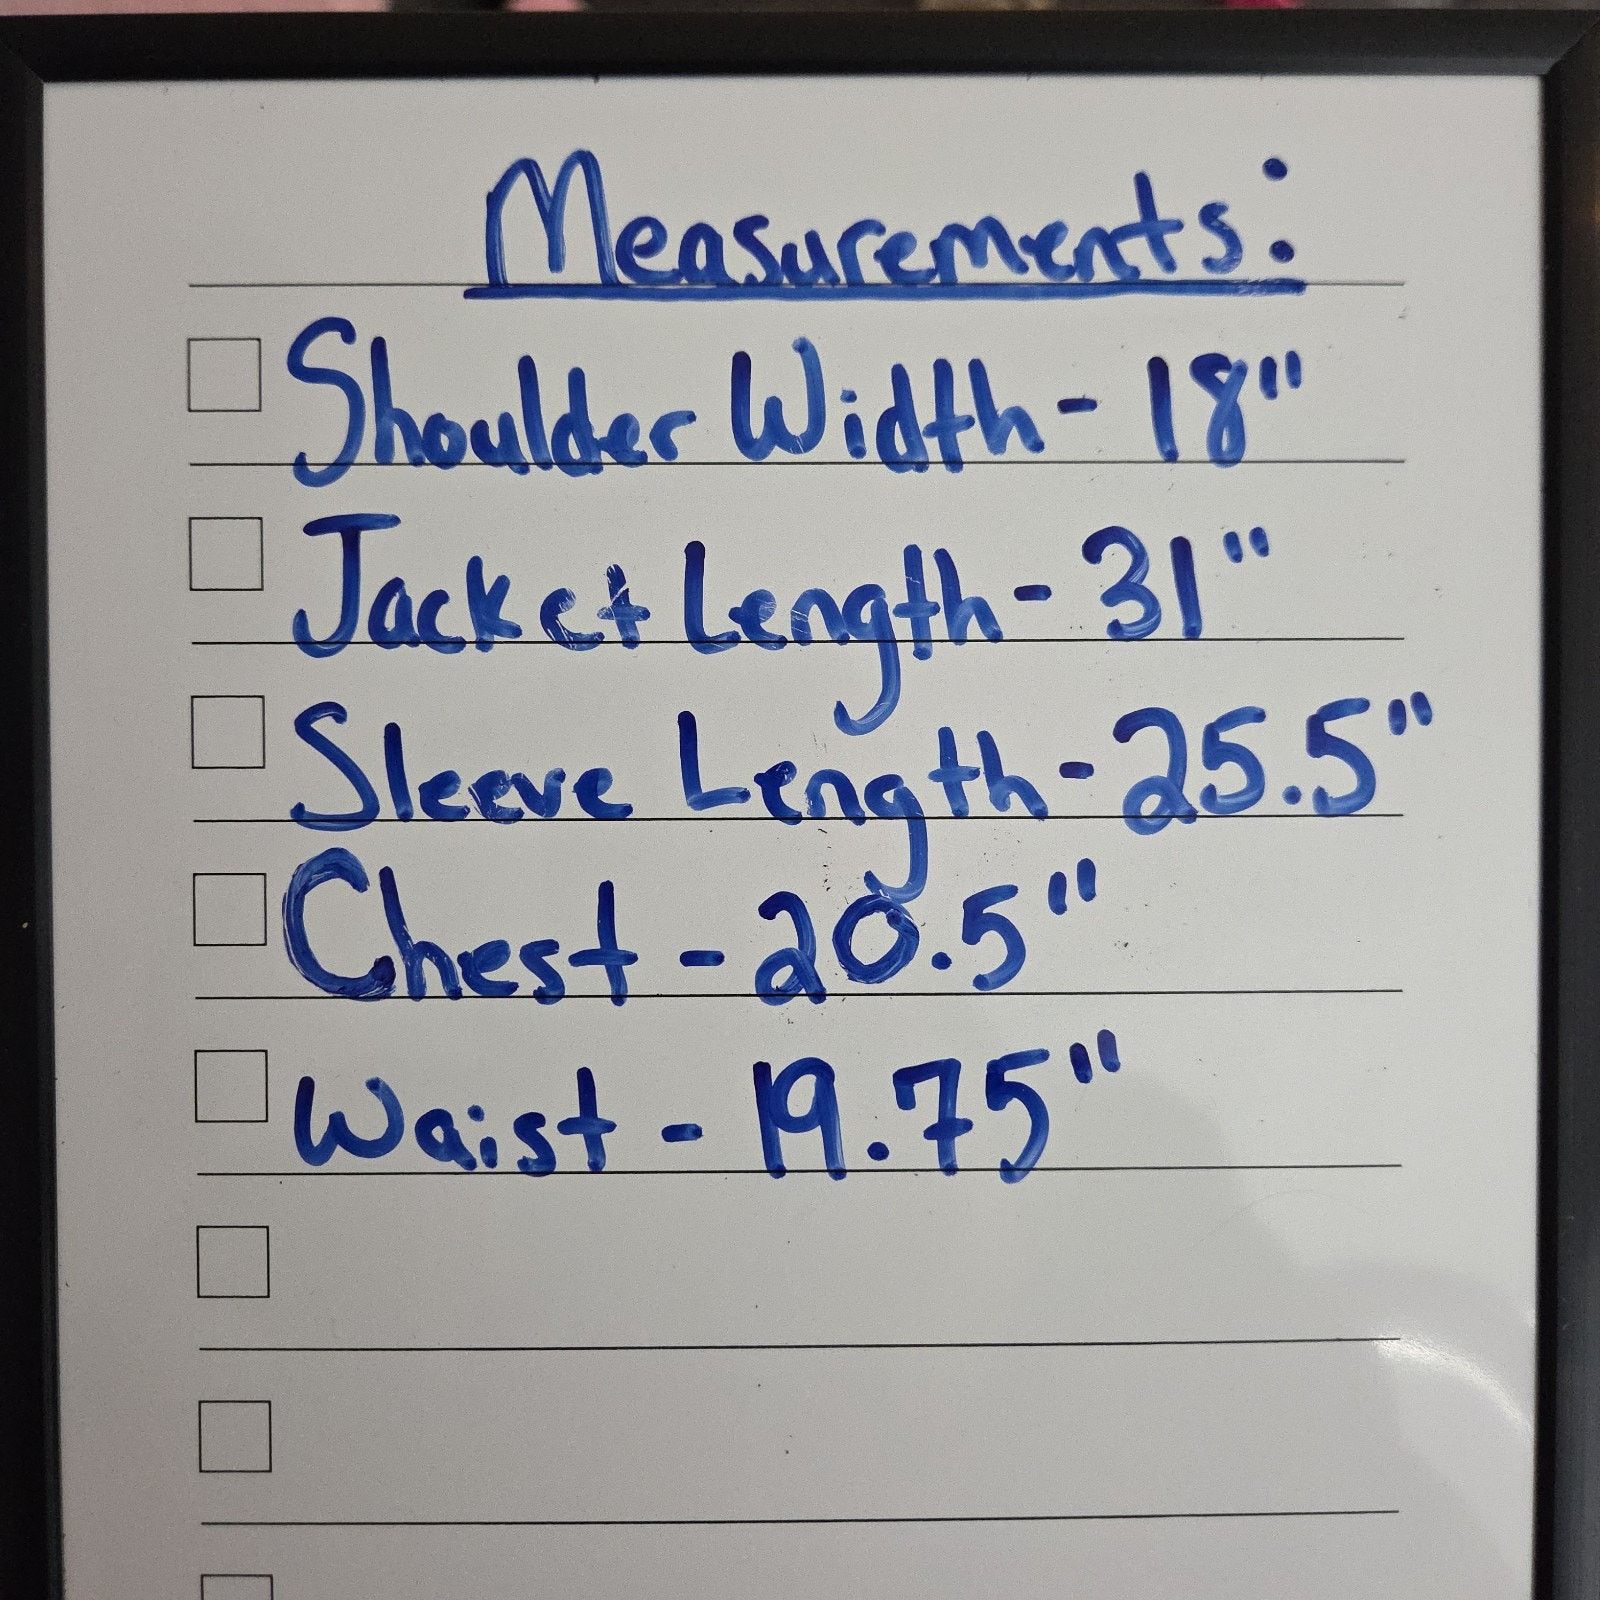 Measurements:
Shoulder Width - 18"
Jacket Length - 31"
Sleeve Length - 25.5"
Chest - 20.5"
Waist - 19.75"